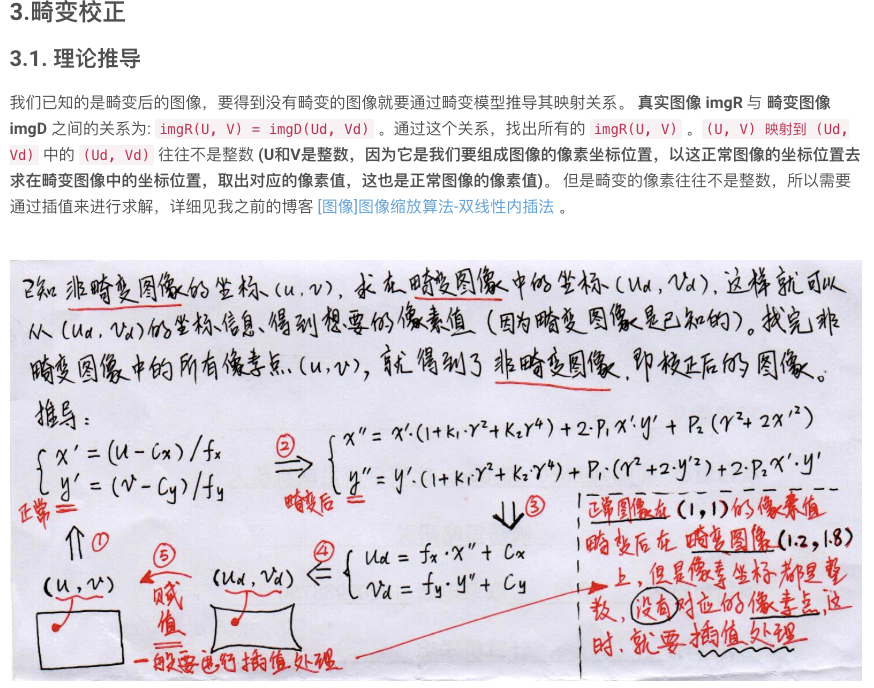 3.畸变校正
3.1. 理论推导
我们已知的是畸变后的图像，要得到没有畸变的图像就要通过畸变模型推导其映射关系。 真实图像 imgR 与 畸变图像
imgD 之间的关系为: imgR(U, V) = imgD(Ud, Vd) 。通过这个关系，找出所有的 imgR(U, V) 。(U, V) 映射到 (Ud,
Vd) 中的 (Ud, Vd) 往往不是整数 (U和V是整数，因为它是我们要组成图像的像素坐标位置，以这正常图像的坐标位置去
求在畸变图像中的坐标位置，取出对应的像素值，这也是正常图像的像素值)。 但是畸变的像素往往不是整数，所以需要
通过插值来进行求解，详细见我之前的博客 [图像]图像缩放算法-双线性内插法 。
已知 非畸变图像的坐标 (u, v)，求在畸变图像中的坐标 (Ud, Vd)，这样就可以
从 (Ud, Vd) 的坐标信息、得到想要的像素值 (因为畸变图像是已知的)。找完非
畸变图像中的所有像素点 (u, v)，就得到了 非畸变图像，即校正后的图像。
推导：
x' = (u - Cx)/fx
y' = (v - Cy)/fy
正常
②
畸变后
x'' = x'·(1+K₁·r²+K₂r⁴)+2·P₁x'·y' + P₂(r²+2x'²)
y'' = y'·(1+K₁·r²+K₂·r⁴)+P₁·(r²+2·y'²)+2·P₂x'·y'
③
④
Ud = fx·x'' + Cx
Vd = fy·y'' + Cy
①
(u, v)
⑤
赋
值
(Ud, Vd)
一般要进行插值处理
正常图像在 (1,1) 的像素值
畸变后在 畸变图像 (1.2, 1.8)
上，但是像素坐标都是整
数，没有对应的像素点，这
时，就要插值处理